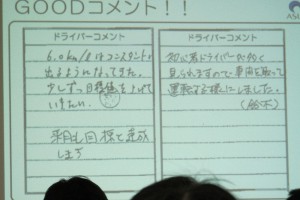 GOODコメント!!
ドライバーコメント
6.0km/lはコンスタントに
出るようになってきた。
少しずつ目標値を上げて
いきたい。
来月も目標を達成
します
ドライバーコメント
初心者ドライバーに
見られますので車両を
運転する様にしました。
(鈴木)